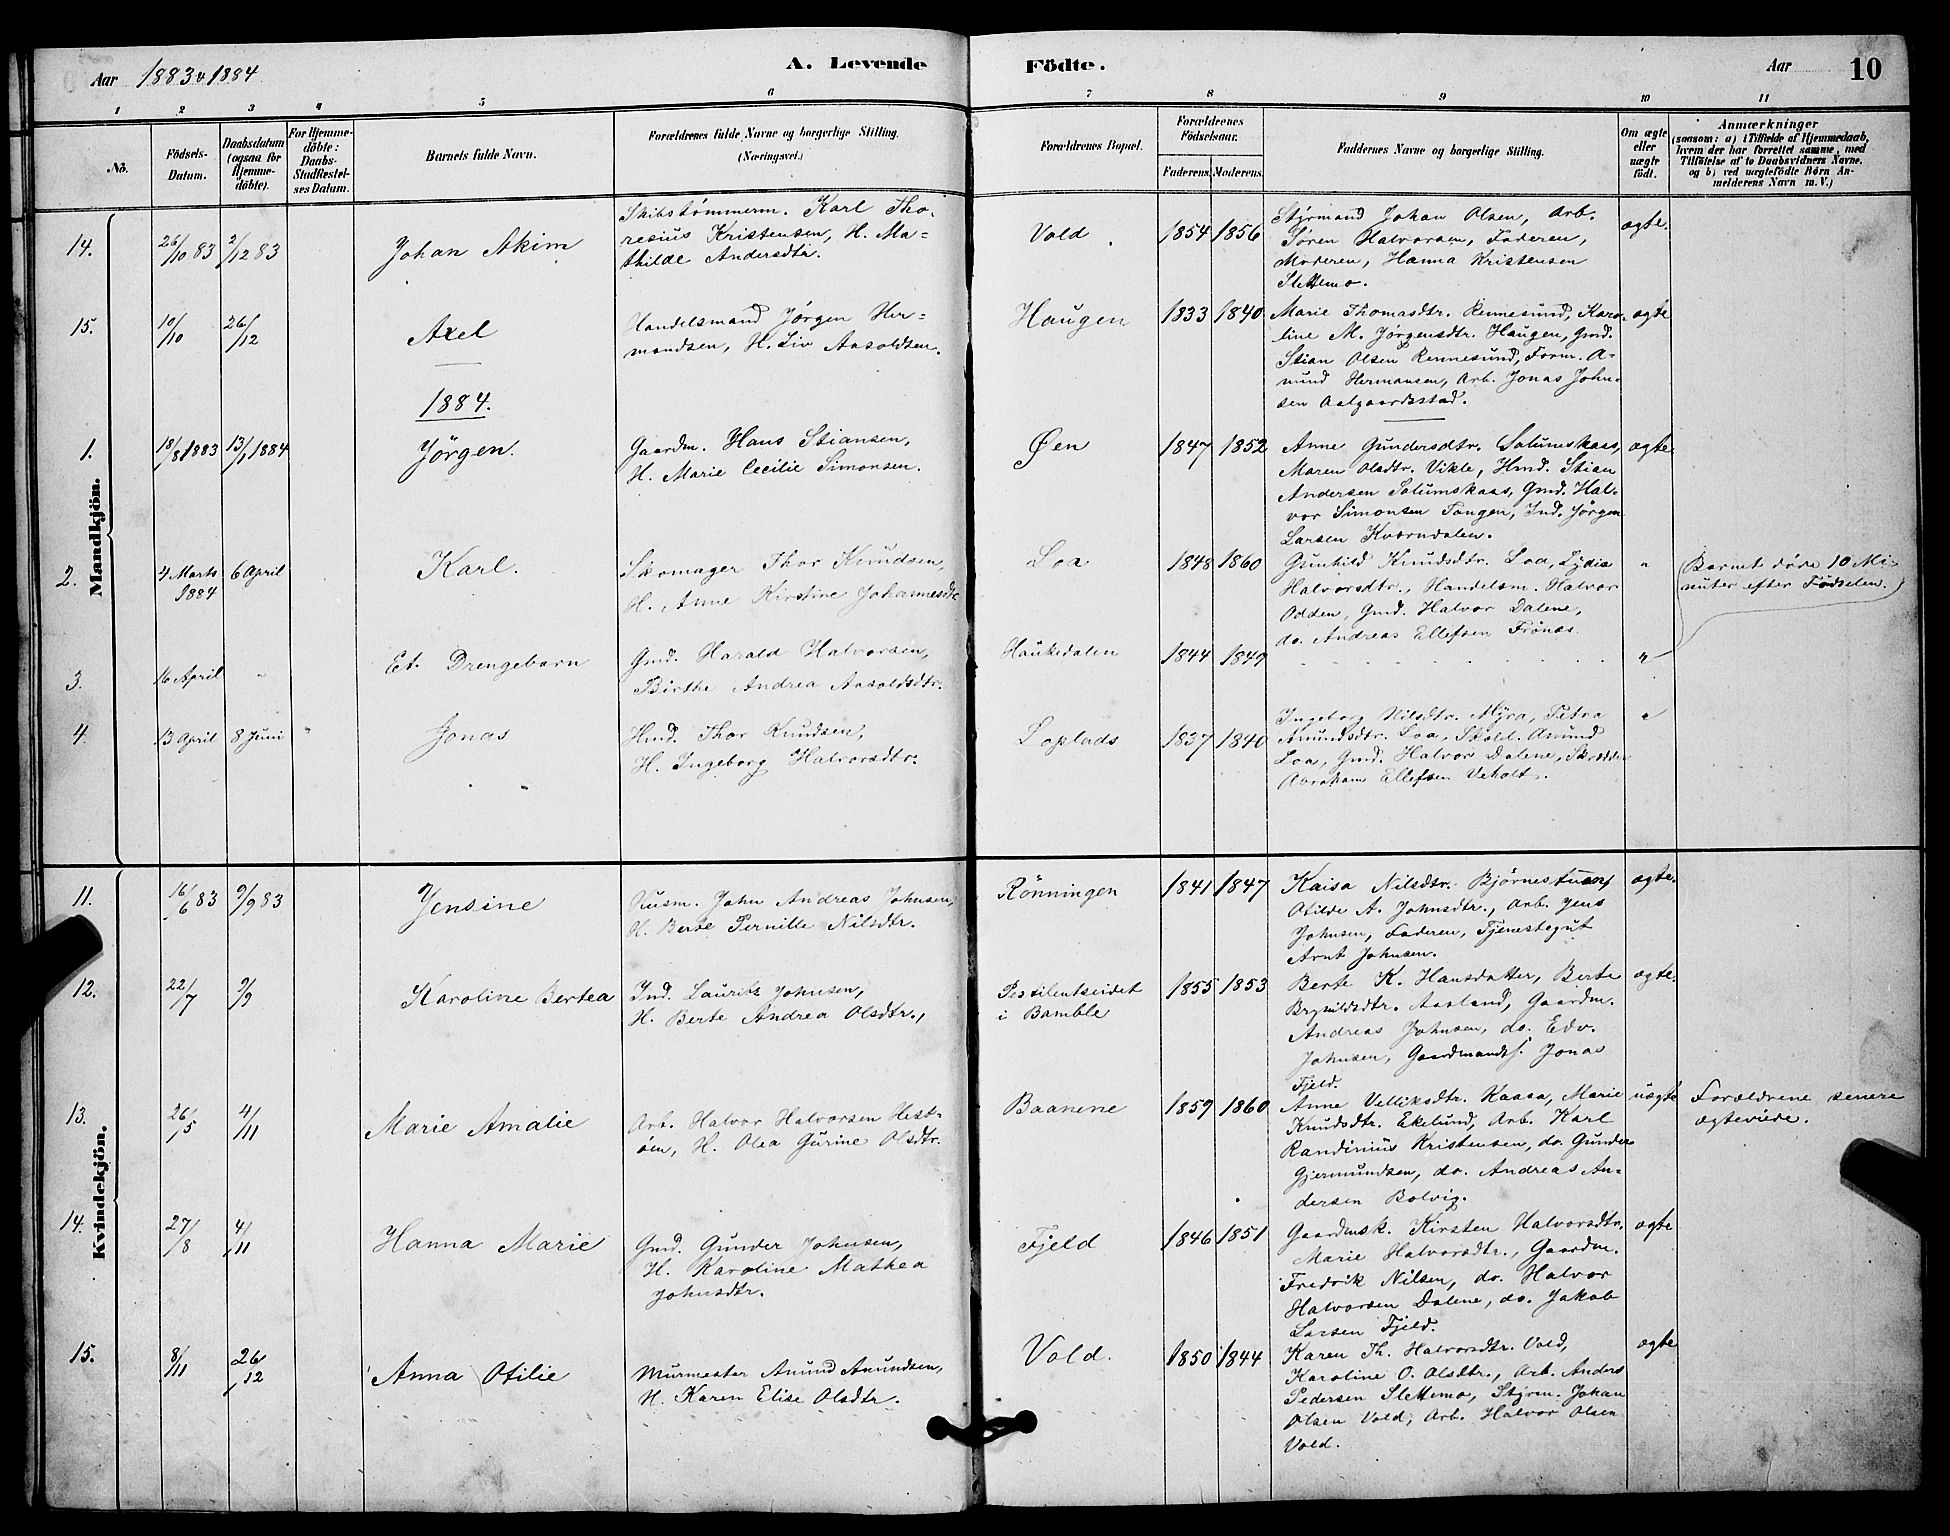 Aar 1883 & 1884
A. Levende Födte.
Aar
10
1 2 3 4 5 6 7 8 9 10 11
No.
Födsels-Datum.
Daabsdatum (ogsaa for Hjemmedöbte).
For Hjemmedöbte: Daabs-Stadfestelses Datum.
Barnets fulde Navn.
Forældrenes fulde Navne og borgerlige Stilling.
(Næringsvei.)
Forældrenes Bopæl.
Forældrenes Födselsaar.
Faderens. Moderens.
Faddernes Navne og borgerlige Stilling.
Om ægte eller uægte födt.
Anmærkninger
(saasom: a) i Tilfælde af Hjemmedaab, hvem der har forrettet samme, med Tilföielse af to Daabsvidners Navne, og b) ved uægtefödte Börn Anmelderens Navn m. V.)
Mandkjön.
14. 26/10 83 2/12 83 Johan Akim
Skibstømmerm. Karl Tho-
resius Kristensen, H. Ma-
thilde Andersdtr.
Vold 1854 1856
Styrmand Johan Olsen, Arb.
Søren Halvorsen, Faderen,
Moderen, Hanna Kristensen
Slettemo.
ægte.
15. 10/10 26/12 Axel
Handelsmand Jørgen Her-
mandsen, H. Liv Aasoldsen.
Haugen 1833 1840
Marie Thomasdtr. Rennesund, Karo-
line M. Jørgensdtr. Haugen, Gmd.
Stian Olsen Rennesund, Form. A-
mund Hermansen, Arb. Jonas John-
sen Aalgaardsstad.
ægte
1884.
1. 18/8 1883 13/1 1884 Jørgen.
Gaardm. Hans Stiansen,
H. Marie Cecilie Simonsen.
Øen 1847 1852
Anne Gundersdtr. Solumskaas,
Maren Olsdtr. Vikle, Hmd. Stian
Andersen Solumskaas, Gmd. Hal-
vor Simonsen Tangen, Ind. Jørgen
Larsen Kværndalen.
ægte.
2. 4 Marts 1884 6 April Karl.
Skomager Thor Knudsen,
H. Anne Kirstine Johannesdtr.
Loa 1848 1860
Gunhild Knudsdtr. Loa, Lydia
Halvorsdtr., Handelsm. Halvor
Odden, Gmd. Halvor Dalene,
do. Andreas Ellefsen Frönæs.
"
(Barnet døde 10 Mi-
nuter efter Fødselen.)
3. 16 April " Et Drengebarn
Gmd. Harald Halvorsen,
Birthe Andrea Aasoldsdtr.
Haukedalen 1844 1849
"
4. 13 April 8 Juni " Jonas
Hmd. Thor Knudsen,
H. Ingeborg Halvorsdtr.
Loplads 1837 1840
Ingeborg Nilsdtr. Myra, Petra
Amundsdtr. Loa, Skold. Amund
Loa, Gmd. Halvor Dalene, Skrædder
Abraham Ellefsen Veholt.
"
Kvindekjön.
11. 16/6 83 9/9 83 Jensine
Husm. John Andreas Johnsen,
H. Berte Pernille Nilsdtr.
Rönningen 1841 1847
Kaisa Nilsdtr. Bjørnestuen,
Otilde A. Johnsdtr., Arb. Jens
Johnsen, Faderen, Tjenestegut
Arnt Johnsen.
ægte.
12. 22/7 9/9 Karoline Bertea
Ind. Lauritz Johnsen,
H. Berte Andrea Olsdtr.,
Pessilentseidet
i Bamble
1855 1853
Berte K. Hansdatter, Berte
Brynildsdtr. Aasland, Gaardm.
Andreas Johnsen, do. Edv.
Johnsen, Gaardmands. Jonas
Fjeld.
ægte.
13. 26/5 4/11 Marie Amalie
Arb. Halvor Halvorsen Hest-
øen, H. Olea Gurine Olsdtr.
Baanene 1859 1860
Anne Velliksdtr. Kaasa, Marie
Knudsdtr. Ekelund, Arb. Karl
Randinius Kristensen, do. Gunder
Gjermundsen, do. Andreas An-
dersen Bolvig.
uægte
Forældrene senere
ægteviede.
14. 27/8 4/11 Hanna Marie
Gmd. Gunder Johnsen,
H. Karoline Mathea
Johnsdtr.
Fjeld 1846 1851
Gaardmsk. Kirsten Halvorsdtr.
Marie Halvorsdtr., Gaardm.
Fredrik Nilsen, do. Halvor
Halvorsen Dalene, do. Jakob
Larsen Fjeld.
ægte
15. 8/11 26/12 Anna Otilie
Murmester Amund Amundsen,
H. Karen Elise Olsdtr.
Vold. 1850 1844
Karen Th. Halvorsdtr. Vold,
Karoline O. Olsdtr., Arb. Anders
Pedersen Slettemo, Styrm. Johan
Olsen Vold, Arb. Halvor Olsen
Vold.
ægte